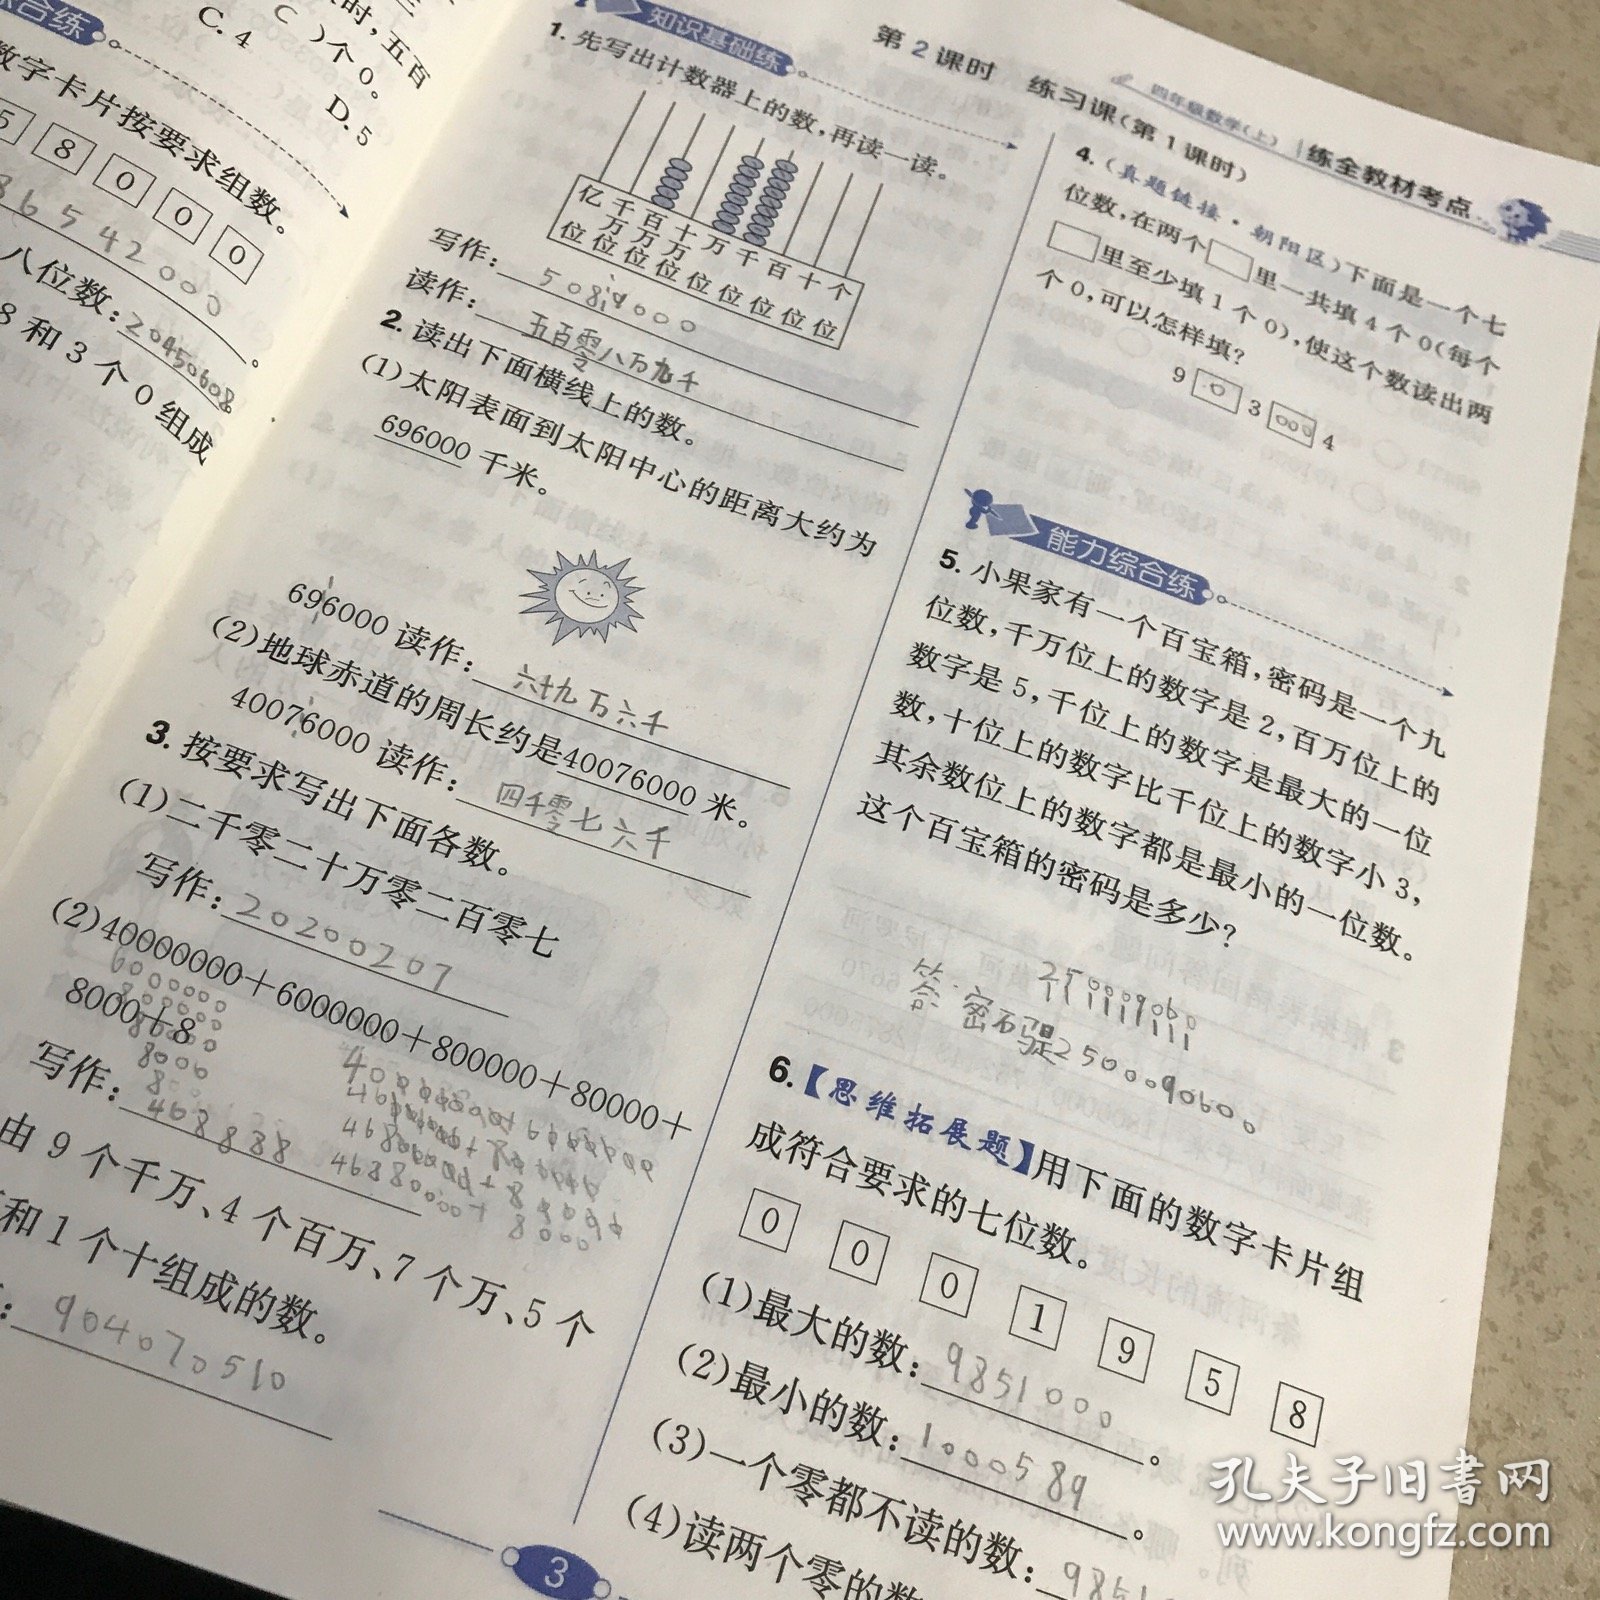 综合练
C. 4
D. 5
时,五百
C )个0。
数字卡片按要求组数。
5 8 0 0 0
86542000
。
八位数:20450608
8和3个0组成
第2课时 练习课(第1课时)
四年级数学(上) 练全教材考点
知识基础练
1. 先写出计数器上的数,再读一读。
亿 千万 百万 十万 万 千 百 十 个
位 位 位 位 位 位 位 位 位
写作:
5089000
读作:
五百零八万九千
2. 读出下面横线上的数。
(1)太阳表面到太阳中心的距离大约为
696000 千米。
696000 读作:六十九万六千
(2)地球赤道的周长约是40076000 米。
40076000 读作:四千零七六千
3. 按要求写出下面各数。
(1)二千零二十万零二百零七
写作:20200207
(2)40000000+6000000+800000+80000+
8000+8
写作:468888
由9个千万、4个百万、7个万、5个
和1个十组成的数。
:904070510
3
4. (真题链接·朝阳区)下面是一个七
位数,在两个□里一共填4个0(每个
□里至少填1个0),使这个数读出两
个0,可以怎样填?
9 0 3 000 4
能力综合练
5. 小果家有一个百宝箱,密码是一个九
位数,千万位上的数字是2,百万位上的
数字是5,千位上的数字是最大的一位
数,十位上的数字比千位上的数字小3,
其余数位上的数字都是最小的一位数。
这个百宝箱的密码是多少?
250009060
答:密码是250009060。
6.【思维拓展题】用下面的数字卡片组
成符合要求的七位数。
0 0 0 1 9 5 8
(1)最大的数:9851000。
(2)最小的数:1000589。
(3)一个零都不读的数:9851
(4)读两个零的数
孔夫子旧书网
www.kongfz.com